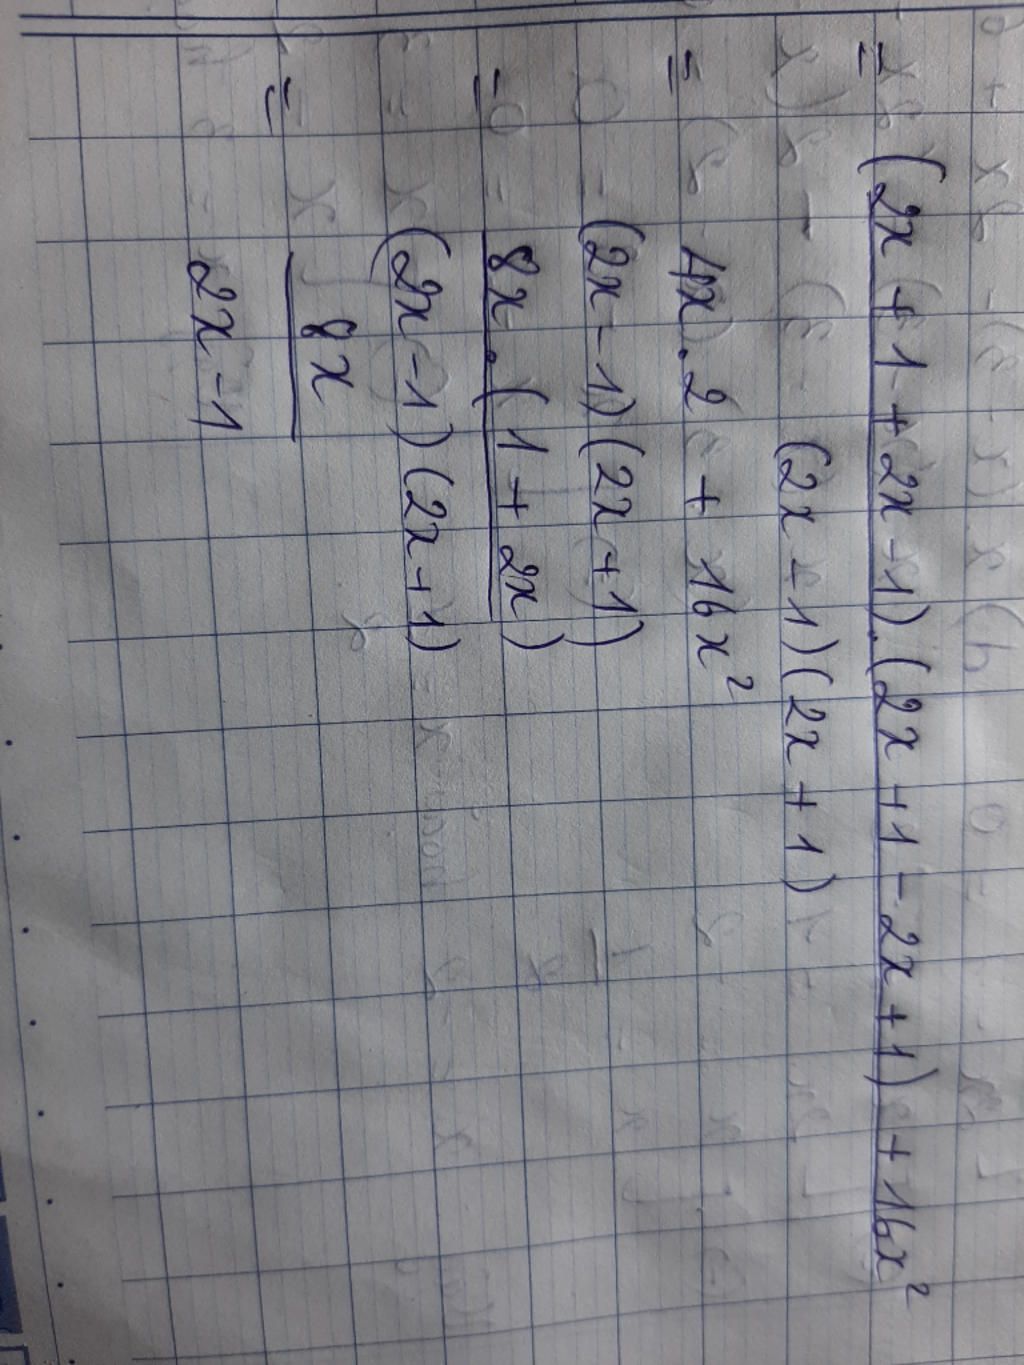 = (2x + 1 + 2x - 1).(2x + 1 - 2x + 1) + 16x²
(2x - 1)(2x + 1)
= 4x.2 + 16x²
(2x - 1)(2x + 1)
= 8x.(1 + 2x)
(2x - 1)(2x + 1)
= 8x
2x - 1